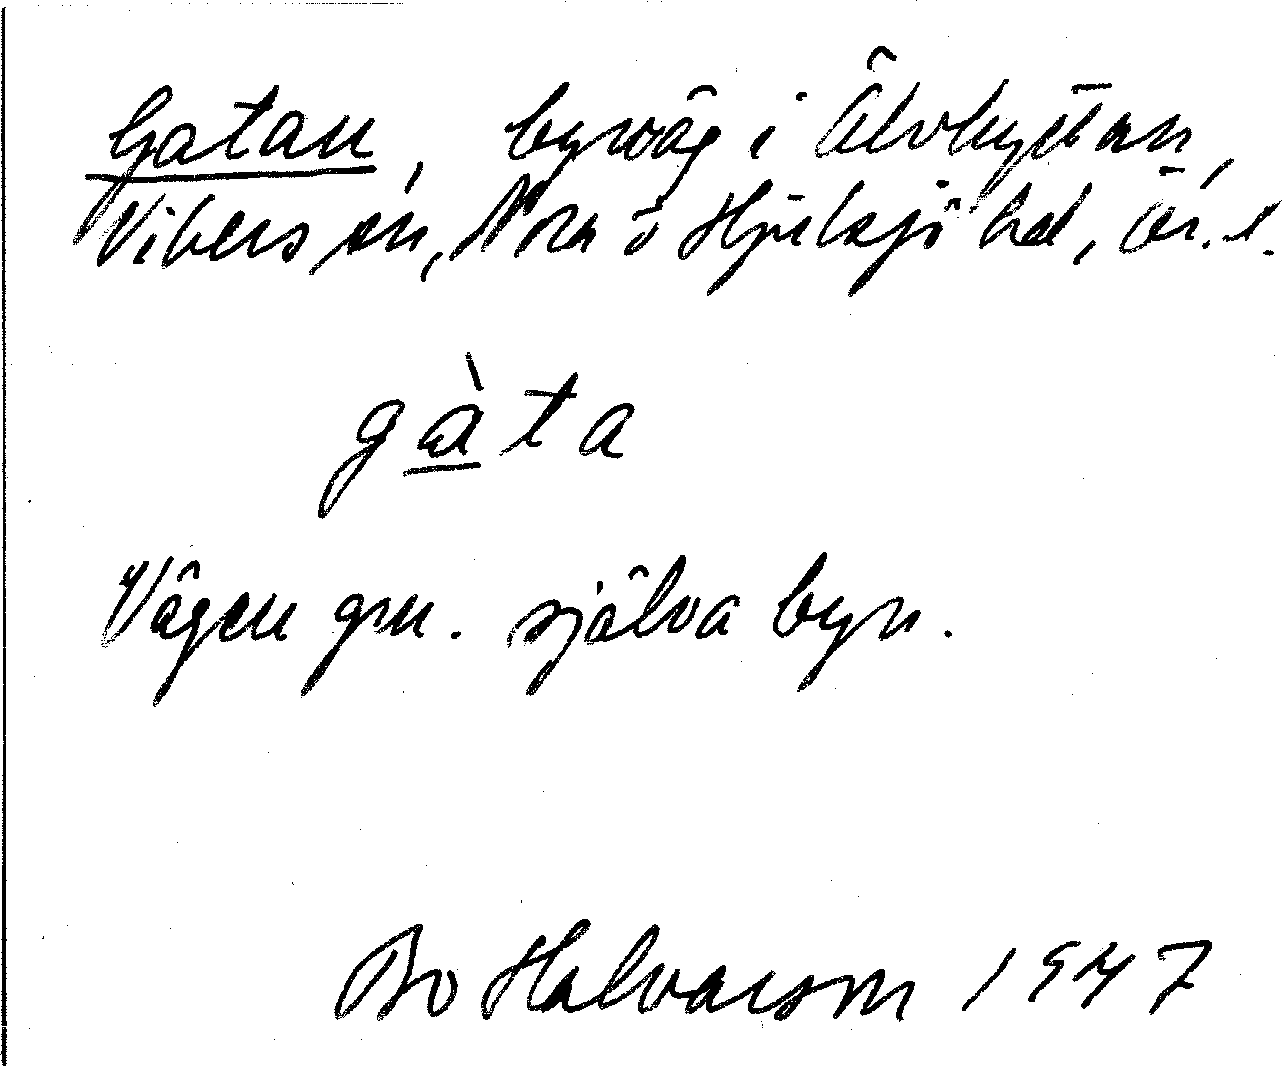 Gatan, byväg i Älvhyttan,
Vibers sn, Nora o Hjulsjö hd, Ör. l.
gàta
Vägen gm. själva byn.
Bo Halvarson 1947